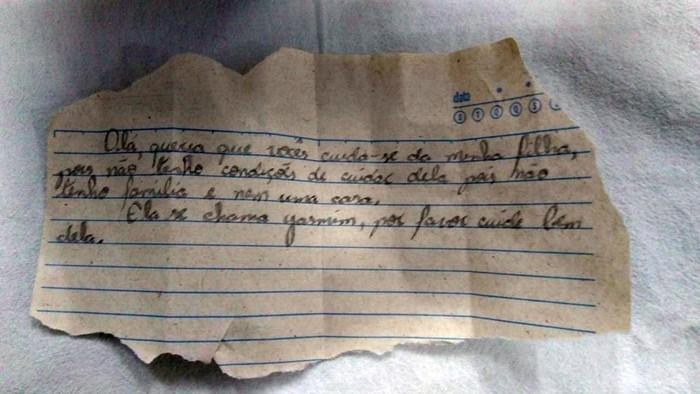 data
D S T Q Q S
Olá queria que vocês cuida-se da minha filha,
pois não tenho condições de cuidar dela pois não
tenho família e nem uma casa.
Ela se chama yasmim, por favor cuide bem
dela.